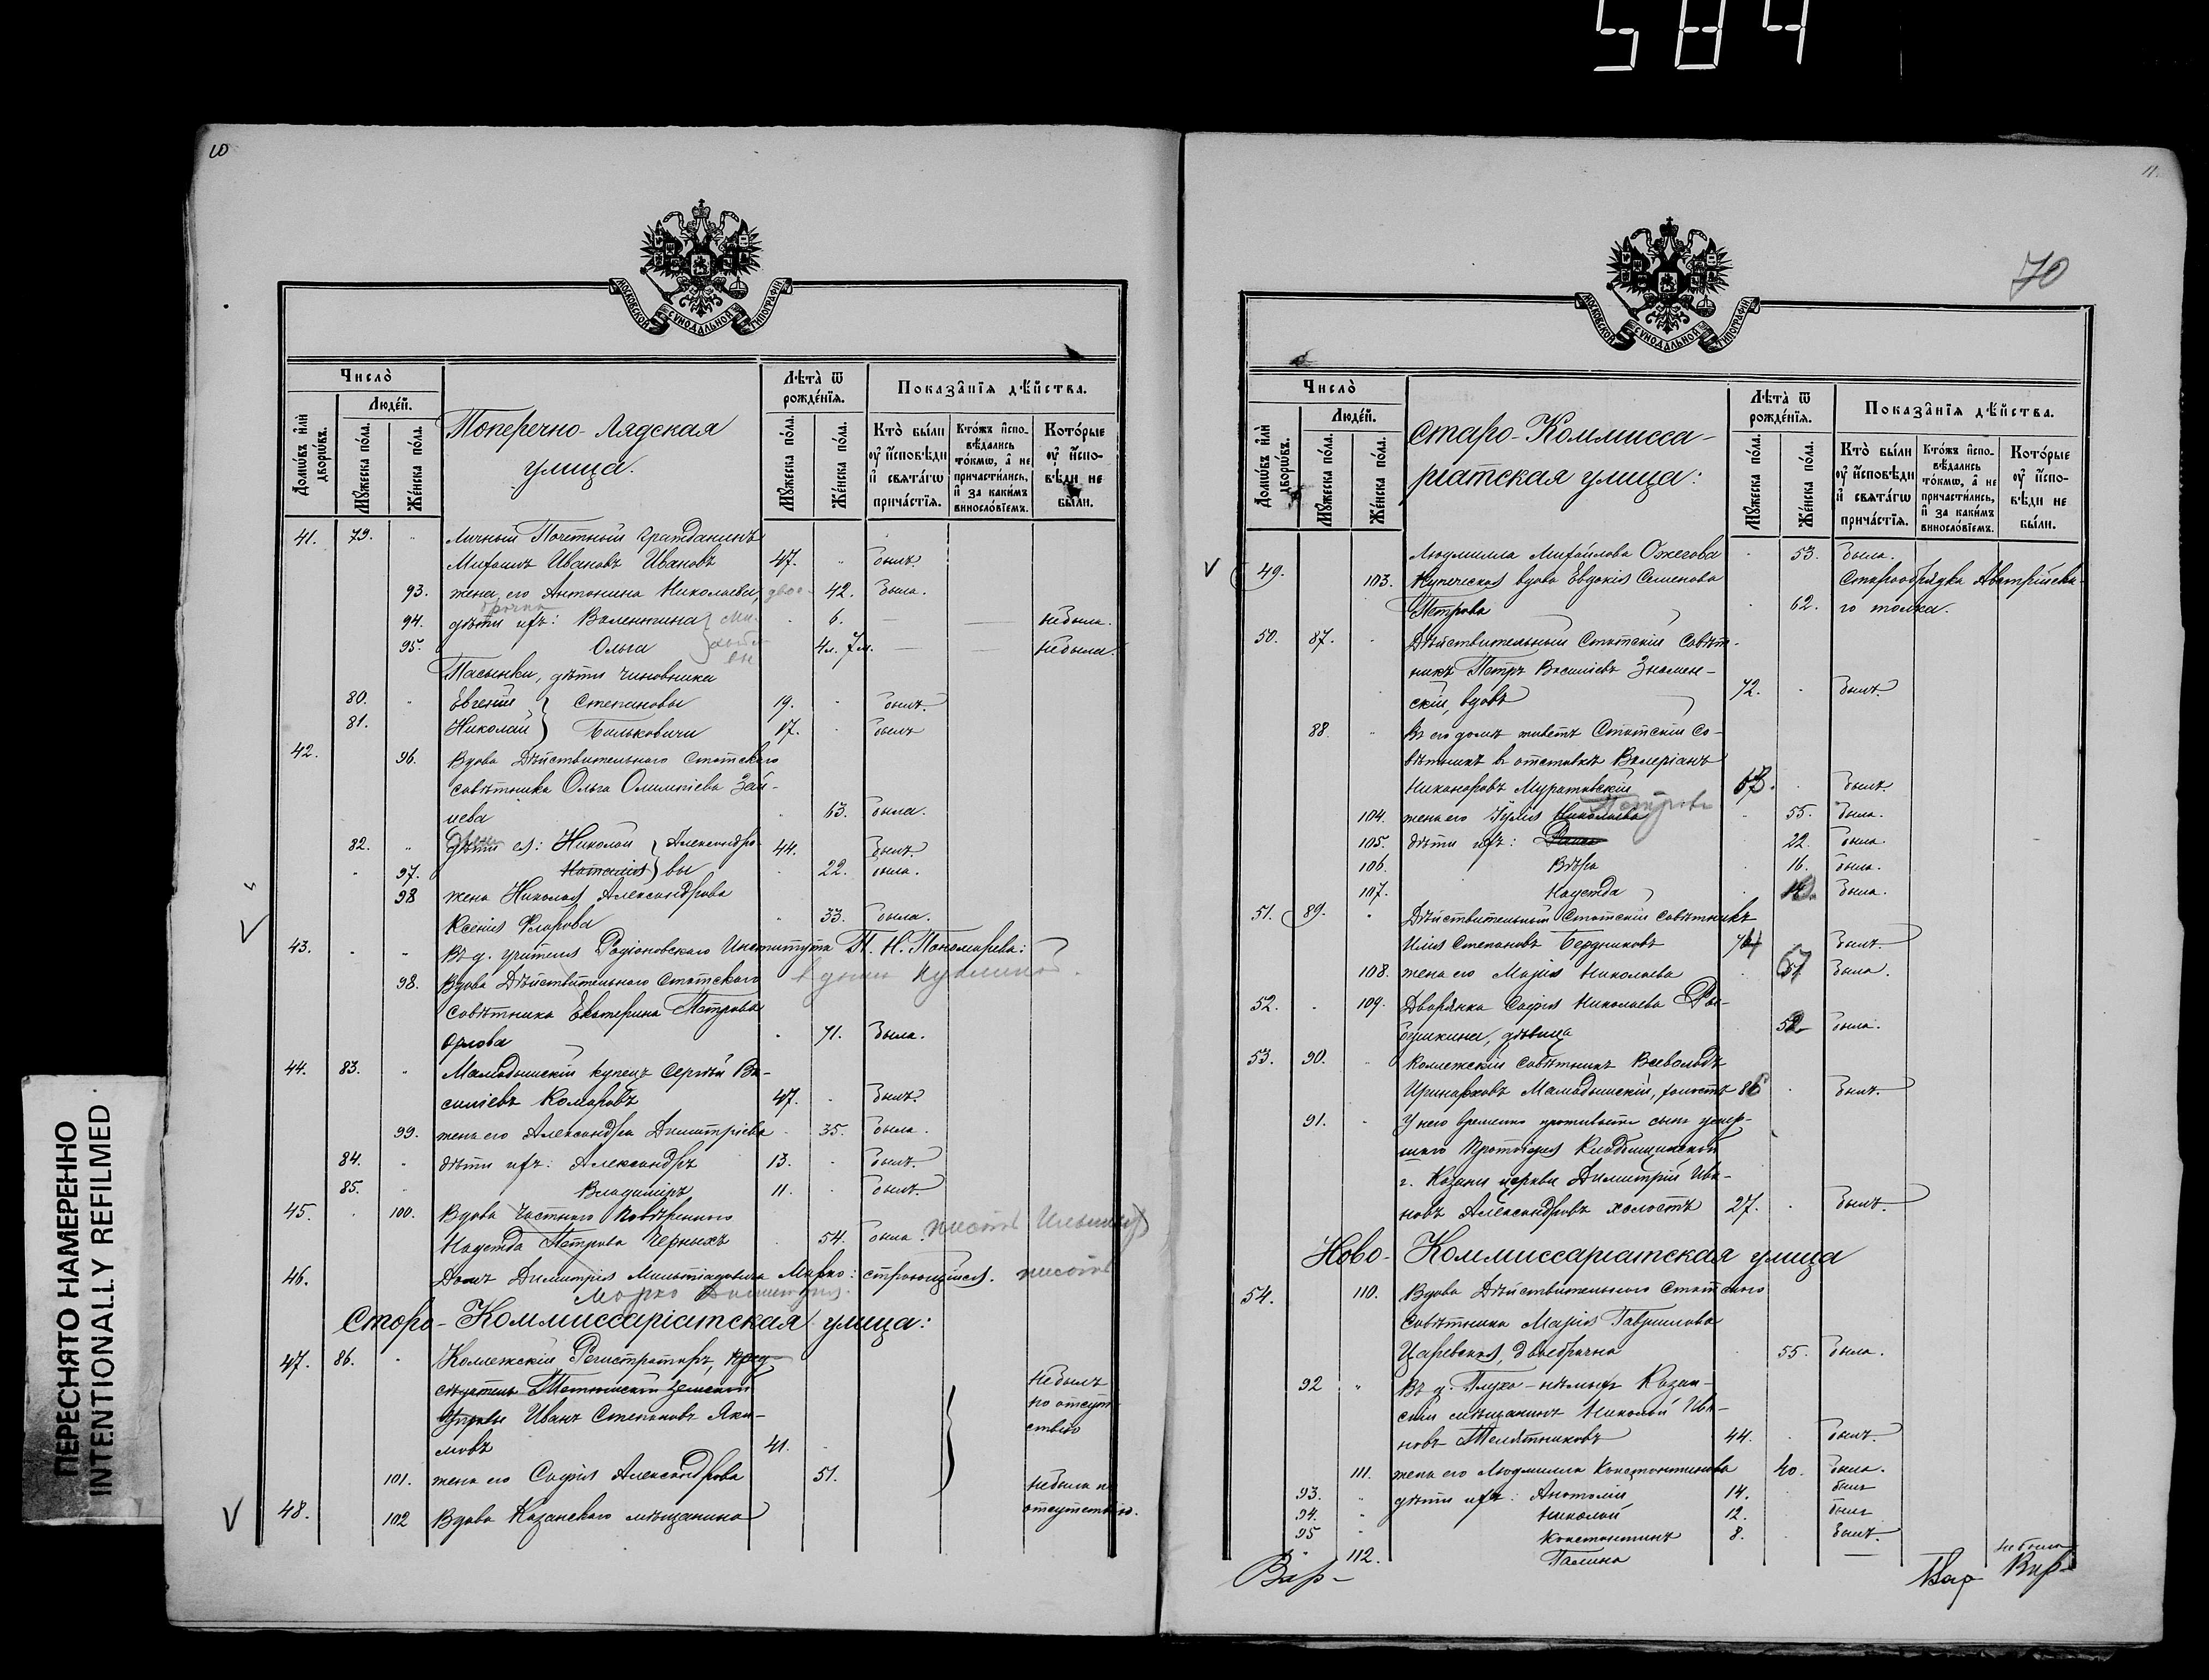 584
ПЕРЕСНЯТО НАМЕРЕННО
INTENTIONALLY REFILMED
10
МОСКОВСКОЙ СѴНОДАЛЬНОЙ ТИПОГРАФІИ
Число̀
Людéй.
Домѡ́въ и҆лѝ дворѡ́въ.
Мꙋ́жеска по́ла.
Же́нска по́ла.
Поперечно-Лядская
улица.
Лѣта̀ ѿ рожде́нїѧ.
Мꙋ́жеска по́ла.
Же́нска по́ла.
Показа̑нїѧ дѣ́йства.
Кто̀ бы́ли оу҆ и҆сповѣди и҆ свѧта́гѡ прича́стїѧ.
Кто́жъ и҆спо-вѣдались то́кмѡ, а҆ не причасти́лись, и҆ за каки́мъ винословїемъ.
Кото́рые оу҆ и҆спо-вѣди не бы́ли.
41. 79. " Личный Почетный гражданинъ
Михаилъ Ивановъ Ивановъ 47. " былъ.
93. жена его Антонина Николаева, двое- 42. была.
брачна
94. дѣти ихъ: Валентина } Ми- 6. — — не была.
95. Ольга } хайло- 4 л. 7 м. — — не была.
вы
Пасынки, дѣти чиновника
80. " Евгеній } Степановы 19. " былъ.
81. Николай } Бальковичи 17. былъ
42. 96. Вдова Дѣйствительнаго Статскаго
совѣтника Ольга Олимпіева Зай-
цева 63. была.
82. " дѣти ея: Николай } Александро- 44. былъ.
97. Наталія } вы 22. была.
98 жена Николая Александрова
Ксенія Фларова " 33. была.
43. " " Въ д. учителя Родіоновскаго Института П. Н. Пономарева:
98. Вдова Дѣйствительнаго Статскаго
совѣтника Екатерина Петрова
Орлова " 71. была.
44. 83. " Мамадышскій купецъ Сергѣй Ва-
силіевъ Комаровъ 47. " былъ.
99. жена его Александра Димитріева 35. была.
84. " дѣти ихъ: Александръ 13. " былъ.
85. " Владиміръ 11. " былъ.
45. 100. Вдова частнаго повѣреннаго
Надежда Петрова Черныхъ 54. была.
46. Домъ Димитрія Мильтіадовича Марко: строющійся.
Марко Димитрія.
Старо-Коммиссаріатская улица:
47. 86. " Коллежскій Регистраторъ, пред-
сѣдатель Тетюшской земской
управы Иванъ Степановъ Яки-
мовъ 41. не былъ по отсут-ствію
101. жена его Софія Александрова 51. не была по
48. 102 Вдова Казанскаго мѣщанина отсутствію.
11.
70
МОСКОВСКОЙ СѴНОДАЛЬНОЙ ТИПОГРАФІИ
Число̀
Людéй.
Домѡ́въ и҆лѝ дворѡ́въ.
Мꙋ́жеска по́ла.
Же́нска по́ла.
Старо-Коммисса-
ріатская улица:
Лѣта̀ ѿ рожде́нїѧ.
Мꙋ́жеска по́ла.
Же́нска по́ла.
Показа̑нїѧ дѣ́йства.
Кто̀ бы́ли оу҆ и҆сповѣди и҆ свѧта́гѡ прича́стїѧ.
Кто́жъ и҆спо-вѣдались то́кмѡ, а҆ не причасти́лись, и҆ за каки́мъ винословїемъ.
Кото́рые оу҆ и҆спо-вѣди не бы́ли.
Людмилла Михайлова Ожегова 53. была.
49. 103. Купеческая вдова Евдокія Семенова Старообрядка Австрійска-
Петрова 62. го толка.
50. 87. Дѣйствительный Статскій Совѣт-
никъ Петръ Василіевъ Знамен-
скій, вдовъ 72. былъ.
88. " Въ его домѣ живетъ Статскій Со-
вѣтникъ въ отставкѣ Валеріанъ
Никаноровъ Муратовскій 63. былъ.
Петрова
104. жена его Юлія Николаева 55. была.
105. дѣти ихъ: 22. была.
106. Вѣра 16. была.
107. Надежда была.
51. 89. " Дѣйствительный Статскій совѣтникъ
Илія Степановъ Бердниковъ 74 былъ.
108. жена его Марія Николаева 67 была.
52. 109. Дворянка Софія Николаева Ра-
бушкина, дѣвица 52 была.
53. 90. Коллежскій совѣтникъ Всеволодъ
Иринарховъ Мамадышскій, холостъ 86 былъ.
91. У него временно проживаетъ сынъ умер-
шаго Протоіерея Кладбищенской
г. Казани церкви Димитрій Ива-
новъ Александровъ холостъ 27. былъ.
Ново-Коммиссаріатская улица
54. 110. Вдова Дѣйствительнаго Статскаго
Совѣтника Марія Гавриилова
Царевская, двоебрачна 55. была.
92 " Въ д. Глухо-нѣмыхъ Казан-
скій мѣщанинъ Николай Ива-
новъ Телятниковъ 44. былъ.
111. жена его Людмилла Константинова 40. была.
93. " дѣти ихъ: Анатолій 14. былъ
94. " Николай 12. былъ
95 " Константинъ 8. былъ.
" 112. Галина — не была
Вар- Вар- Вар-